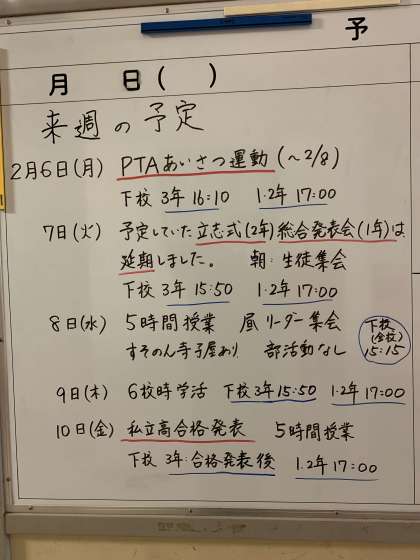 予
月 日( )
来週の予定
2月6日(月) PTAあいさつ運動 (～2/8)
下校 3年 16:10 1.2年 17:00
7日(火) 予定していた立志式(2年)総合発表会(1年)は
延期しました。 朝:生徒集会
下校 3年 15:50 1.2年 17:00
8日(水) 5時間授業 昼 リーダー集会
すそのん寺子屋あり 部活動なし
下校
(全校)
15:15
9日(木) 6校時学活 下校3年15:50 1.2年 17:00
10日(金) 私立高合格発表 5時間授業
下校 3年:合格発表後 1.2年 17:00